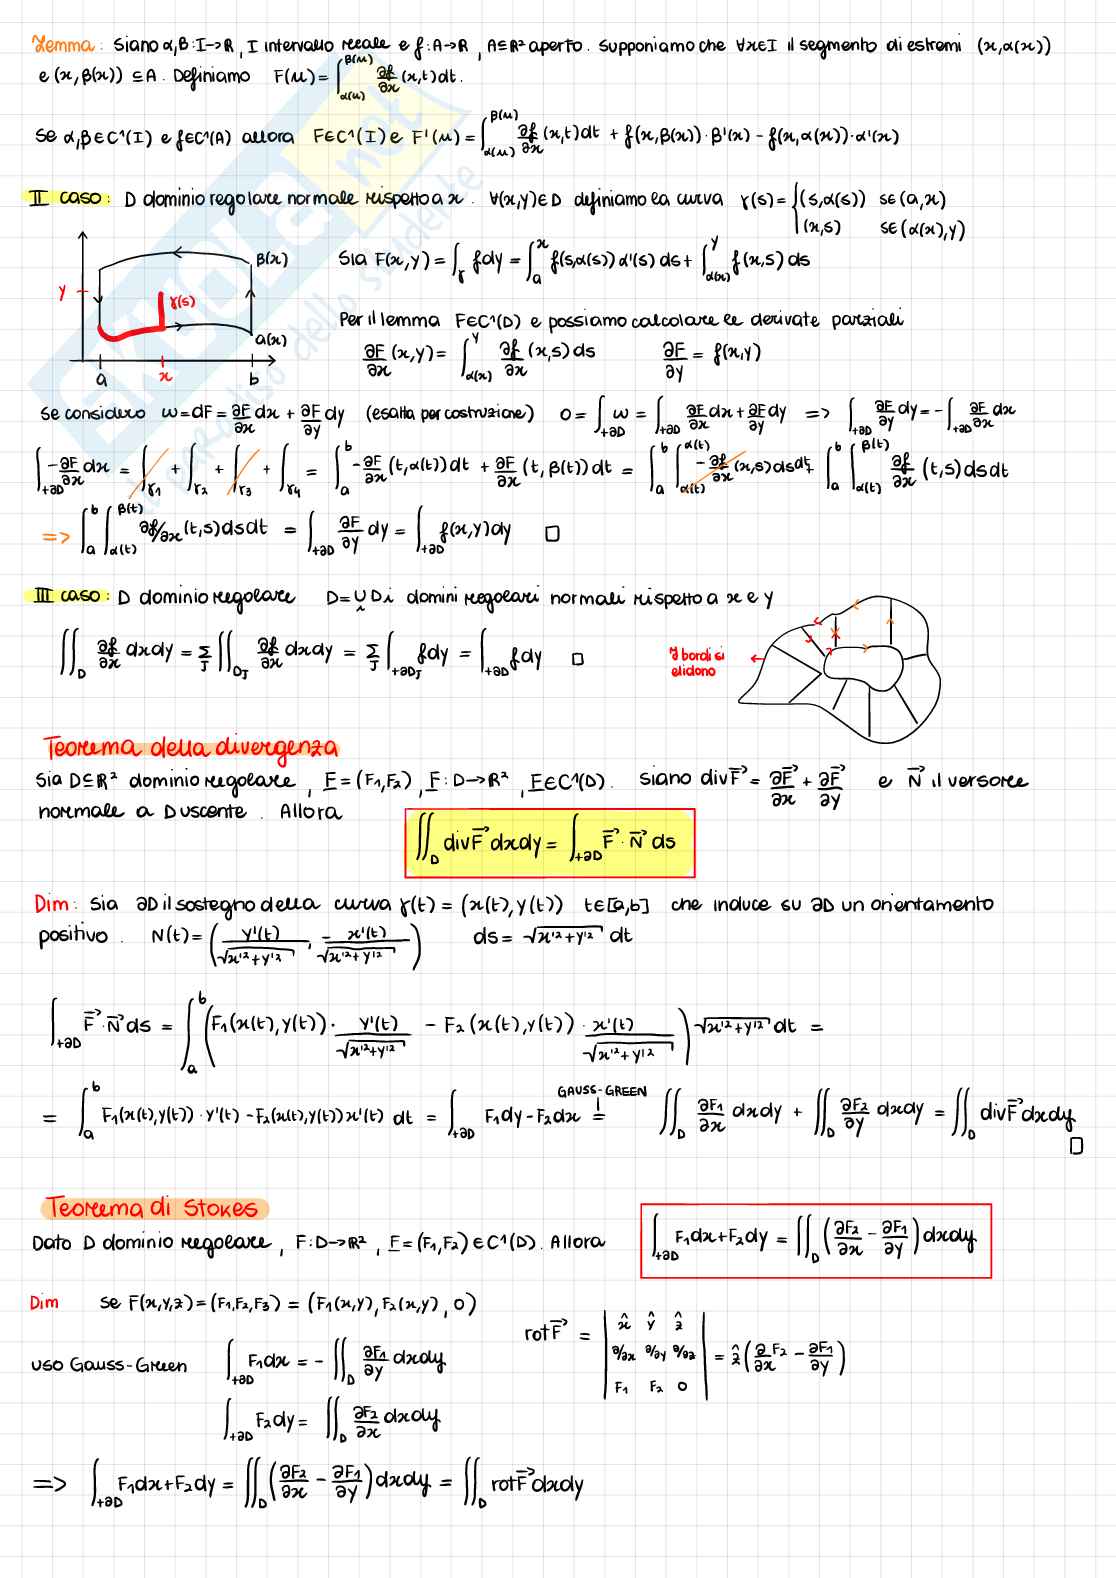 Lemma: Siano α,β: I→R, I intervallo reale e f: A→R, A⊆R² aperto. Supponiamo che ∀x∈I il segmento di estremi (x,α(x))
e (x, β(x)) ⊆A. Definiamo F(x) = ∫_{α(x)}^{β(x)} ∂f/∂x (x,t)dt.
Se α,β∈C¹(I) e f∈C¹(A) allora F∈C¹(I) e F'(x) = ∫_{α(x)}^{β(x)} ∂f/∂x (x,t)dt + f(x,β(x))·β'(x) - f(x,α(x))·α'(x)
II caso: D dominio regolare normale rispetto a x. ∀(x,y)∈D definiamo la curva γ(s) = { (s,α(s)) s∈(a,x)
(x,s) s∈(α(x),y)
β(x)
Sia F(x,y) = ∫_γ fdy = ∫_a^x f(s,α(s)) α'(s) ds + ∫_{α(x)}^y f(x,s) ds
y γ(s)
a(x)
a x b
Per il lemma F∈C¹(D) e possiamo calcolare le derivate parziali
∂F/∂x (x,y) = ∫_{α(x)}^y ∂f/∂x (x,s) ds ∂F/∂y = f(x,y)
Se considero ω=dF = ∂F/∂x dx + ∂F/∂y dy (esatta per costruzione) 0 = ∫_{+∂D} ω = ∫_{+∂D} ∂F/∂x dx + ∂F/∂y dy => ∫_{+∂D} ∂F/∂y dy = - ∫_{+∂D} ∂F/∂x dx
∫_{+∂D} -∂F/∂x dx = ∫_{γ1} + ∫_{γ2} + ∫_{γ3} + ∫_{γ4} = ∫_a^b -∂F/∂x (t,α(t)) dt + ∂F/∂x (t, β(t)) dt = ∫_a^b ∫_{α(t)}^{α(t)} -∂f/∂x (x,s) dsdt + ∫_a^b ∫_{α(t)}^{β(t)} ∂f/∂x (t,s) dsdt
=> ∫_a^b ∫_{α(t)}^{β(t)} ∂f/∂x (t,s) dsdt = ∫_{+∂D} ∂F/∂y dy = ∫_{+∂D} f(x,y)dy □
III caso: D dominio regolare D=∪_i Di domini regolari normali rispetto a x e y
∬_D ∂f/∂x dxdy = Σ_J ∬_{DJ} ∂f/∂x dxdy = Σ_J ∫_{+∂DJ} fdy = ∫_{+∂D} fdy □
I bordi si
elidono
Teorema della divergenza
Sia D⊆R² dominio regolare, F=(F1,F2), F: D→R², F∈C¹(D). Siano div F⃗ = ∂F⃗/∂x + ∂F⃗/∂y e N⃗ il versore
normale a D uscente. Allora
∬_D div F⃗ dxdy = ∫_{+∂D} F⃗ · N⃗ ds
Dim: Sia ∂D il sostegno della curva γ(t) = (x(t), y(t)) t∈[a,b] che induce su ∂D un orientamento
positivo. N(t) = ( y'(t)/√(x'²+y'²), - x'(t)/√(x'²+y'²) ) ds = √(x'²+y'²) dt
∫_{+∂D} F⃗·N⃗ ds = ∫_a^b ( F1(x(t),y(t)) · y'(t)/√(x'²+y'²) - F2(x(t),y(t)) · x'(t)/√(x'²+y'²) ) √(x'²+y'²) dt =
GAUSS-GREEN
= ∫_a^b F1(x(t),y(t)) · y'(t) - F2(x(t),y(t)) x'(t) dt = ∫_{+∂D} F1dy - F2dx = ∬_D ∂F1/∂x dxdy + ∬_D ∂F2/∂y dxdy = ∬_D div F⃗ dxdy
□
Teorema di Stokes
Dato D dominio regolare, F: D→R², F=(F1,F2)∈C¹(D). Allora ∫_{+∂D} F1dx+F2dy = ∬_D (∂F2/∂x - ∂F1/∂y) dxdy
Dim Se F(x,y,z) = (F1,F2,F3) = (F1(x,y), F2(x,y), 0)
rot F⃗ = | x̂ ŷ ẑ
∂/∂x ∂/∂y ∂/∂z
F1 F2 0 | = ẑ (∂/∂x F2 - ∂F1/∂y)
uso Gauss-Green ∫_{+∂D} F1dx = - ∬_D ∂F1/∂y dxdy
∫_{+∂D} F2dy = ∬_D ∂F2/∂x dxdy
=> ∫_{+∂D} F1dx+F2dy = ∬_D (∂F2/∂x - ∂F1/∂y) dxdy = ∬_D rot F⃗ dxdy